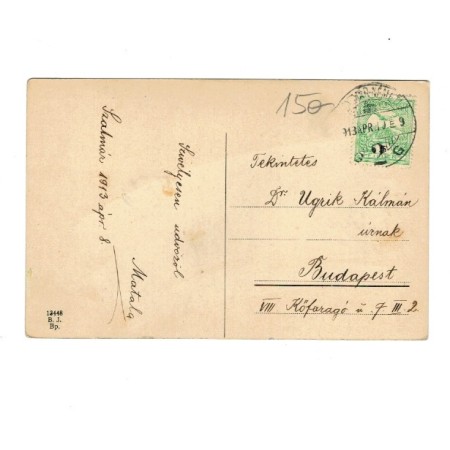 150
Tekintetes
Dr. Ugrik Kálmán
úrnak
Budapest
VIII Kőfaragó u 7 III 2
Szatmár 1913 ápr 8.
Szivélyesen üdvözöl
Matala
2
913 APR
9
12448
B. J.
Bp.